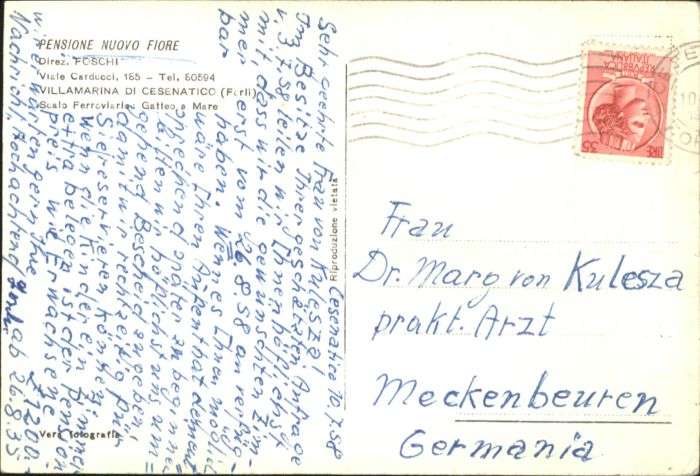 PENSIONE NUOVO FIORE
Direz. FOSCHI
Viale Carducci, 185 - Tel. 80594
VILLAMARINA DI CESENATICO (Forlì)
Scalo Ferroviario: Gatteo a Mare
Cesenatico 10.7.58
Sehr geehrte Frau von Kulesza!
Im Besitze Ihrer geschätzten Anfrage
v. 3.7.58 teilen wir Ihnen höflichst
mit, dass wir die gewünschten Zim-
mer erst vom 26.8.58 an verfüg-
bar haben. Wenn es Ihnen möglich
wäre Ihren Aufenthalt dement
sprechend später zu beginnen
bitten wir höflichst uns um=
gehend Bescheid zu geben,
damit wir rechtzeitig für
Sie reservieren können.
Wenn die Kinder ein Zimmer
extra belegen ist der Pension
preis wie Erwachsene
L. 1200.-
wir erwarten gerne Ihre
ab 26.8.
Nachricht. Hochachtend
Vera fotografia
Riproduzione vietata
REPUBBLICA ITALIANA
LIRE 35
Frau
Dr. Marg von Kulesza
prakt. Arzt
Meckenbeuren
Germania